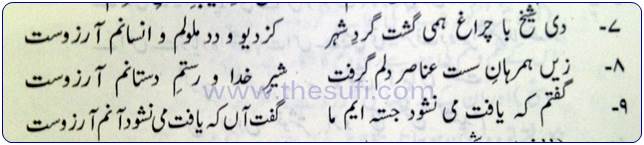 ۷- دی شیخ با چراغ ہمی گشت گردِ شہر کز دیو و دد ملولم و انسانم آرزوست
۸- زیں ہمرہانِ سست عناصر دلم گرفت شیرِ خدا و رستمِ دستانم آرزوست
www.thesufi.com
۹- گفتم کہ یافت می نشود جستہ ایم ما گفت آں کہ یافت می نشود آنم آرزوست